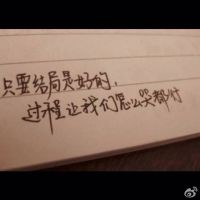 只要结局是好的,
过程让我们怎么哭都行